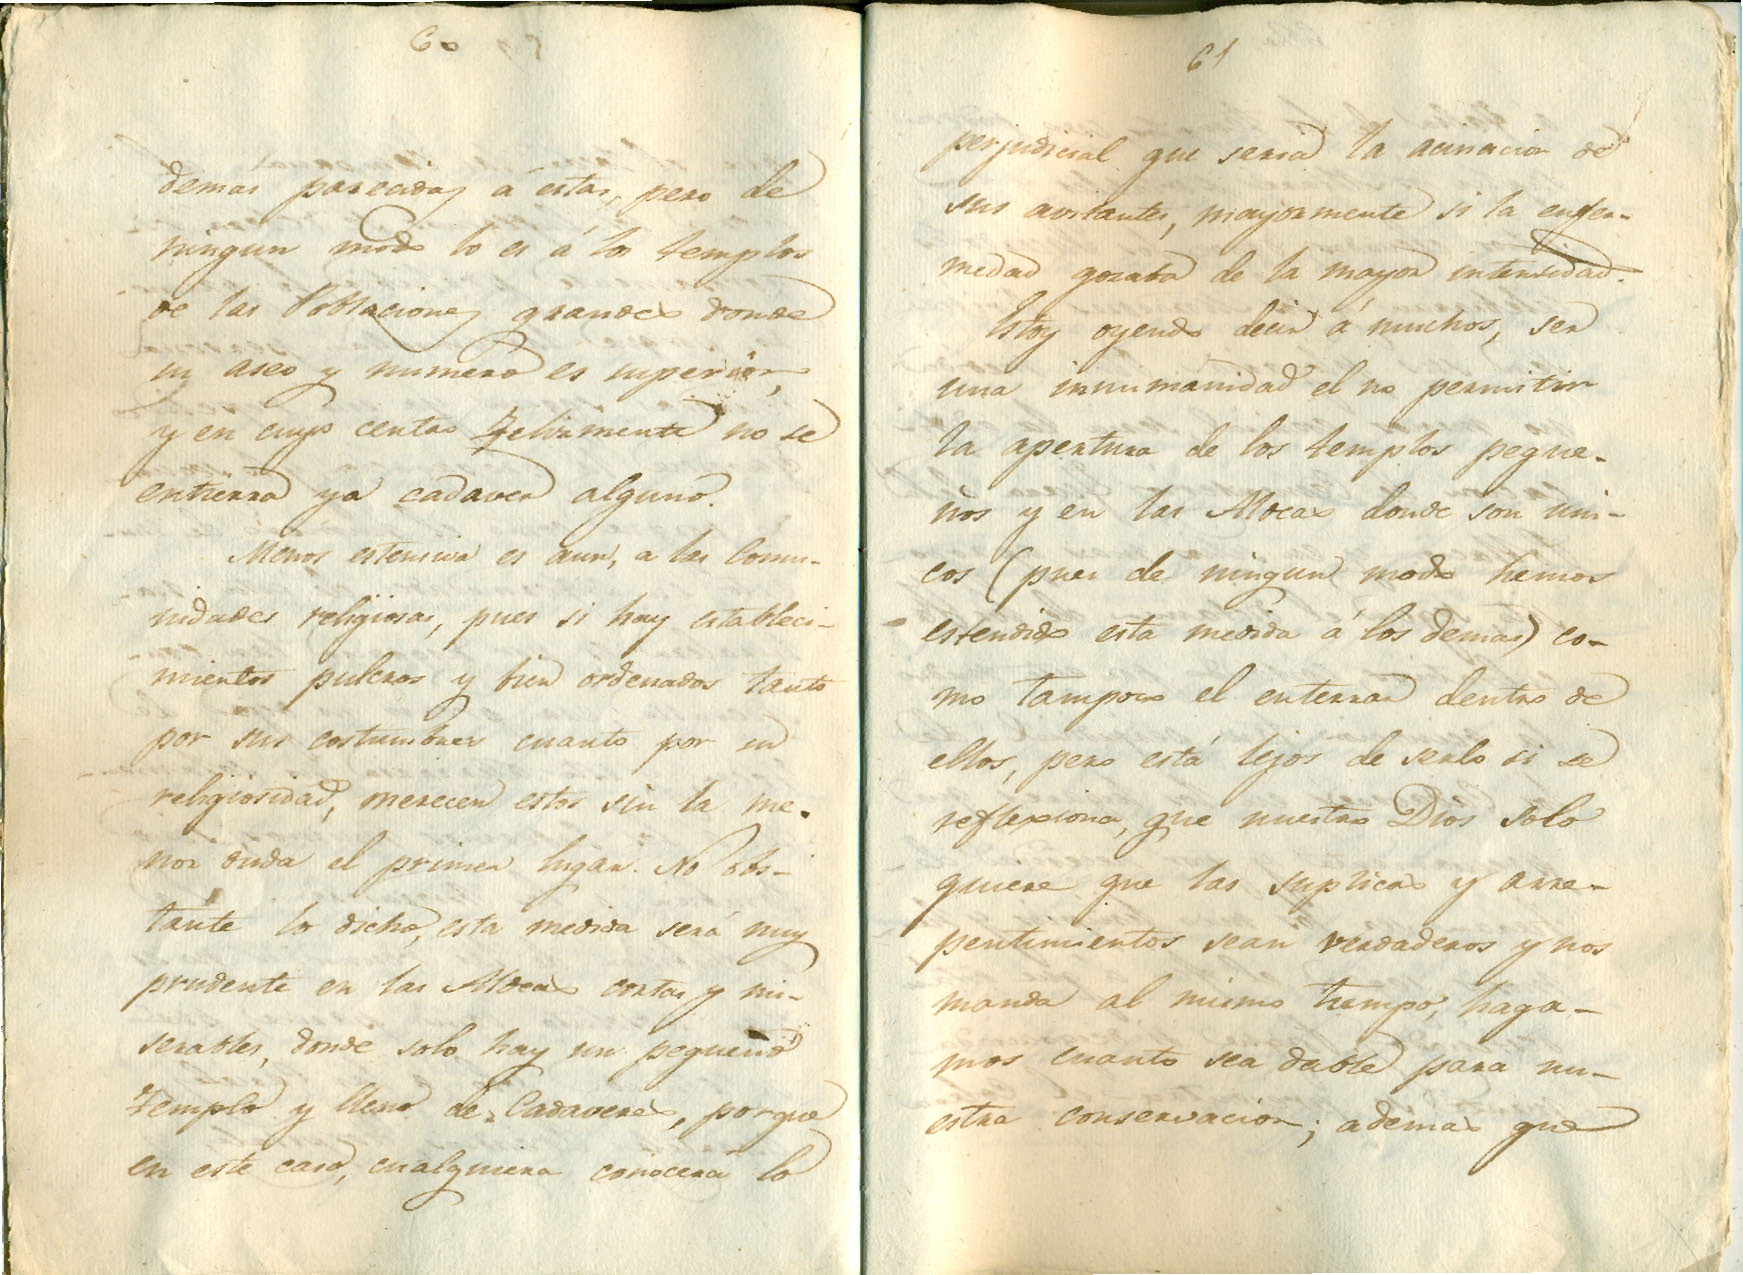 60
demas parecidas á estas, pero de
ningun modo lo es á los templos
de las Poblaciones grandes donde
su aseo y numero es superior,
y en cuyo centro felizmente no se
entierra ya cadaver alguno.
Menos estensiva es aun, a las Comu-
nidades religiosas, pues si hay estableci-
mientos pulcros y bien ordenados tanto
por sus costumbres cuanto por su
religiosidad, merecen estos sin la me-
nor duda el primer lugar. No obs-
tante lo dicho, esta medida será muy
prudente en las Aldeas cortas y mi-
serables, donde solo hay un pequeño
templo y lleno de Cadaveres, porque
en este caso, cualquiera conocerá lo
61
perjudicial que seria la acinacion de
sus avitantes, mayormente si la enfer-
medad gozaba de la mayor intensidad.
Estoy oyendo decir á muchos, ser
una inumanidad el no permitir
la apertura de los templos peque-
ños y en las Aldeas donde son uni-
cos (pues de ningun modo hemos
estendido esta medida á los demas) co-
mo tampoco el enterrar dentro de
ellos, pero está lejos de serlo si se
reflexiona, que nuestro Dios solo
quiere que las suplicas y arre-
pentimientos sean verdaderos y nos
manda al mismo tiempo, haga-
mos cuanto sea dable para nu-
estra conservacion; ademas que